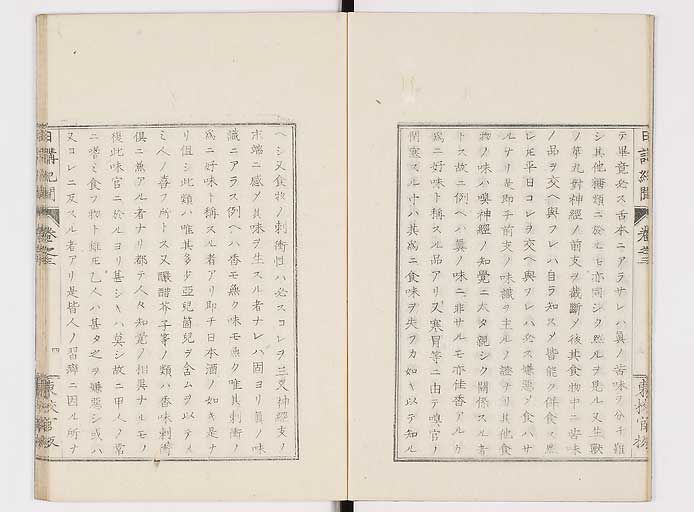 テ畢竟必ス舌本ニアラサレハ眞ノ苦味ヲ分チ難
シ其他糖類ニ於ルモ亦同シク然ルヲ見ル又生獸
ノ第九對神經ノ前支ヲ截斷メ後其食物中ニ苦味
ノ品ヲ交ヘ與フレハ自ラ知スメ皆能ク併食ス然
レ𪜈平日コレヲ交ヘ與フレハ必ス嫌惡メ食ハサ
ルナリ是即チ前支ノ味識ヲ主ルノ證ナリ其他食
物ノ味ハ嗅神經ノ知覺ニ太タ親シク關係スル者
トス故ニ例ヘハ眞ノ味ニ非サルモ亦佳香アルカ
爲ニ好味ト稱スル品アリ又寒冒等ニ由テ嗅官ノ
閉塞スル寸ハ其爲ニ食味ヲ失フカ如キ以テ知ル
日講紀聞 卷之三
ヘシ又食物ノ刺衝性ハ必スコレヲ三叉神經支ノ
末端ニ感メ其味ヲ生スル者ナレハ固ヨリ眞ノ味
識ニアラス例ヘハ香モ無ク味モ無ク唯其刺衝ノ
爲ニ好味ト稱スル者アリ即チ日本酒ノ如キ是ナ
リ但シ此類ハ唯其多少亞兒箇兒ヲ含ムヲ以テメ
ミ人ノ喜フ所トス又釀醋芥子等ノ類ハ香味刺衝
俱ニ兼アル者ナリ都テ人々知覺ノ相異ナルモノ
復此味官ニ於ルヨリ甚シキハ莫シ故ニ甲人ノ常
ニ嗜ミ食フ物ト雖モ乙人ハ甚タ之ヲ嫌惡シ或ハ
又コレニ反スル者アリ是皆人ノ習癖ニ因ル所ナ
日講紀聞 卷之三